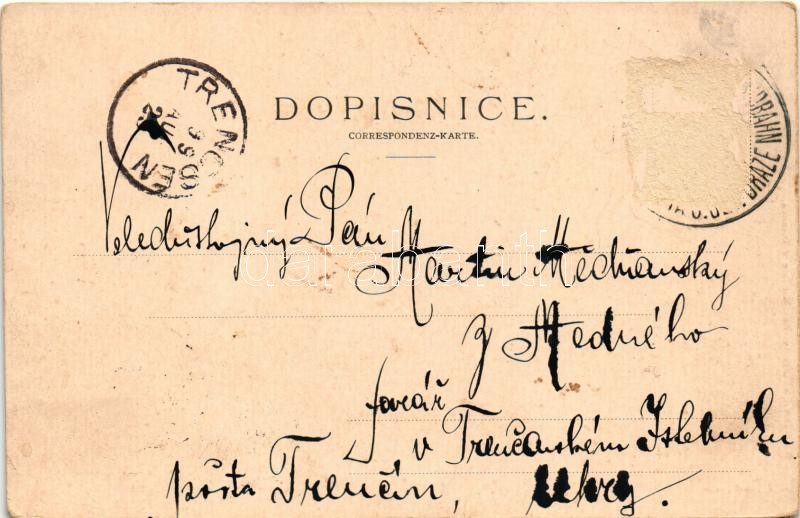 DOPISNICE.
CORRESPONDENZ-KARTE.
TRENCSÉN
Veledůstojný Pán
Martin Medňanský
z Medného
farář
v Trenčanském Istebníku
pošta Trenčín, Uhry.
darabanth